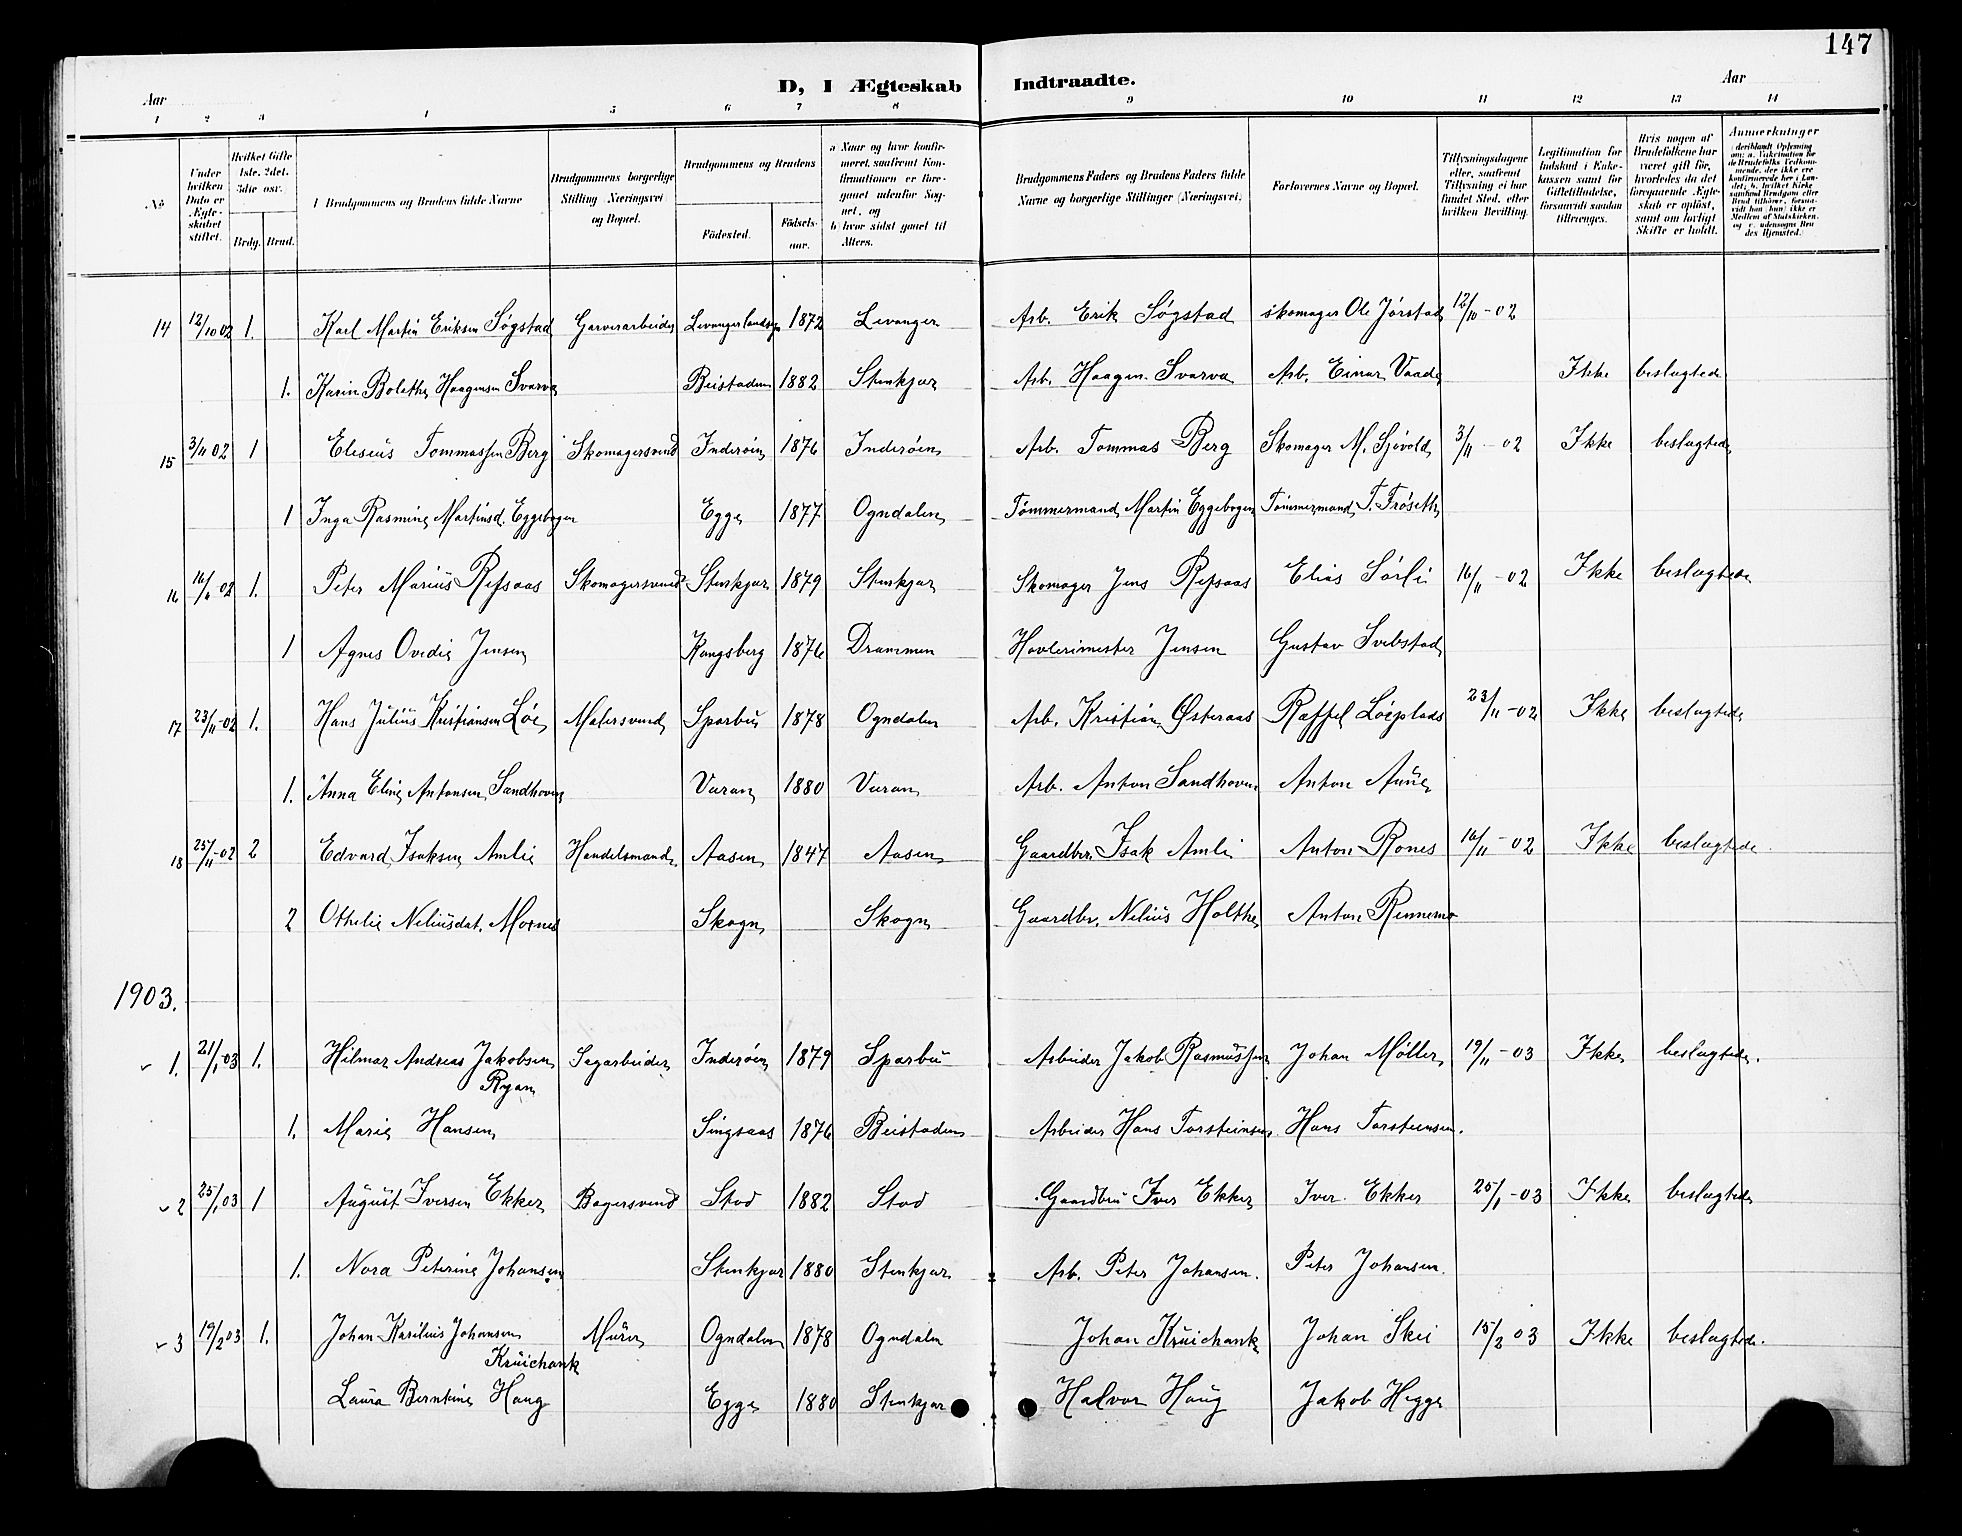 147
D, I Ægteskab Indtraadte.
Aar Aar
1 2 3 4 5 6 7 8 9 10 11 12 13 14
No. Under hvilken Dato er Ægteskabet stiftet. Hvilket Gifte 1ste, 2det, 3die osv. Brdg. Brud. Brudgommens og Brudens fulde Navne Brudgommens borgerlige Stilling (Næringsvei) og Bopæl. Brudgommens og Brudens Fødested. Fødselsaar. a Naar og hvor konfirmeret, saafremt Konfirmationen er foregaaet udenfor Sognet, og b) hvor sidst gaaet til Alters. Brudgommens Faders og Brudens Faders fulde Navne og borgerlige Stillinger (Næringsvei). Forlovernes Navne og Bopæl. Tillysningsdagene eller, saafremt Tillysning ei har fundet Sted, efter hvilken Bevilling. Legitimation for Indskud i Enkekassen samt for Giftetilladelse, forsaavidt saadan tiltrænges. Hvis nogen af Brudefolkene har været gift før, hvorledes da det foregaaende Ægteskab er opløst, samt om lovligt Skifte er holdt. Anmerkninger
14 12/10 02 1. Karl Martin Eriksen Søgstad Garverarbeider Levanger landsogn 1872 Levanger Arb. Erik Søgstad skomager Ole Jørstad 12/10-02
1. Karin Bolethe Haagensen Svarva Beistaden 1882 Stenkjær Arb. Haagen Svarva Arb. Einar Vaade Ikke beslægtede
15 3/11 02 1 Eliseus Tommassen Berg Skomagersvend Inderøen 1876 Inderøen Arb. Tommas Berg Skomager M. Sjøvold 3/11-02 Ikke beslægtede
1 Inga Rasmine Martinsd. Eggebogen Egge 1877 Ogndalen Tømmermand Martin Eggebogen Tømmermand T. Frøseth
16 16/11 02 1. Peter Marius Refsaas Skomagersvend Stenkjær 1879 Stenkjær Skomager Jens Refsaas Elias Sørli 16/11-02 Ikke beslægtede
1 Agnes Ovedie Jensen Kongsberg 1876 Drammen Høvlerimester Jensen Gustav Svebstad
17 23/11-02 1. Hans Julius Kristiansen Løe Malersvend Sparbu 1878 Ogndalen Arb. Kristian Østeraas Raffel Løeplads 23/11-02 Ikke beslægtede
1. Anna Eline Antonsen Sandhoven Væran 1880 Væran Arb. Anton Sandhoven Anton Aune
18 25/11-02 2 Edvard Isaksen Amlie Handelsmand Aasen 1847 Aasen Gaardbr. Isak Amli Anton Rones 16/11-02 Ikke beslægtede.
2 Othelie Neliusdat. Mornes Skogn Skogn Gaardbr. Nelius Holthe Anton Rennemo
1903.
1. 21/1-03 1. Hilmar Andreas Jakobsen Sagarbeider Inderøen 1879 Sparbu Arbeider Jakob Rasmussen Johan Møller 19/11-03 Ikke beslægtede.
Ryan
1. Marie Hansen Singsaas 1876 Beistaden Arbeider Hans Torsteinsen Hans Torsteinsen.
2 25/1 03 1 August Iversen Ekker Bagersvend Stod 1882 Stod Gaardbru Iver Ekker Iver Ekker 25/1-03 Ikke beslægtede
1. Nora Peterine Johansen Stenkjær 1880 Stenkjær Arb. Peter Johansen. Peter Johansen.
3 19/2 03 1. Johan Karilius Johansen Murer Ogndalen 1878 Ogndalen Johan Kruichank Johan Skei 15/2 03 Ikke beslægtede.
Kruichank
Laura Berntine Haug Egge 1880 Stenkjær Halvor Haug Jakob Hegge